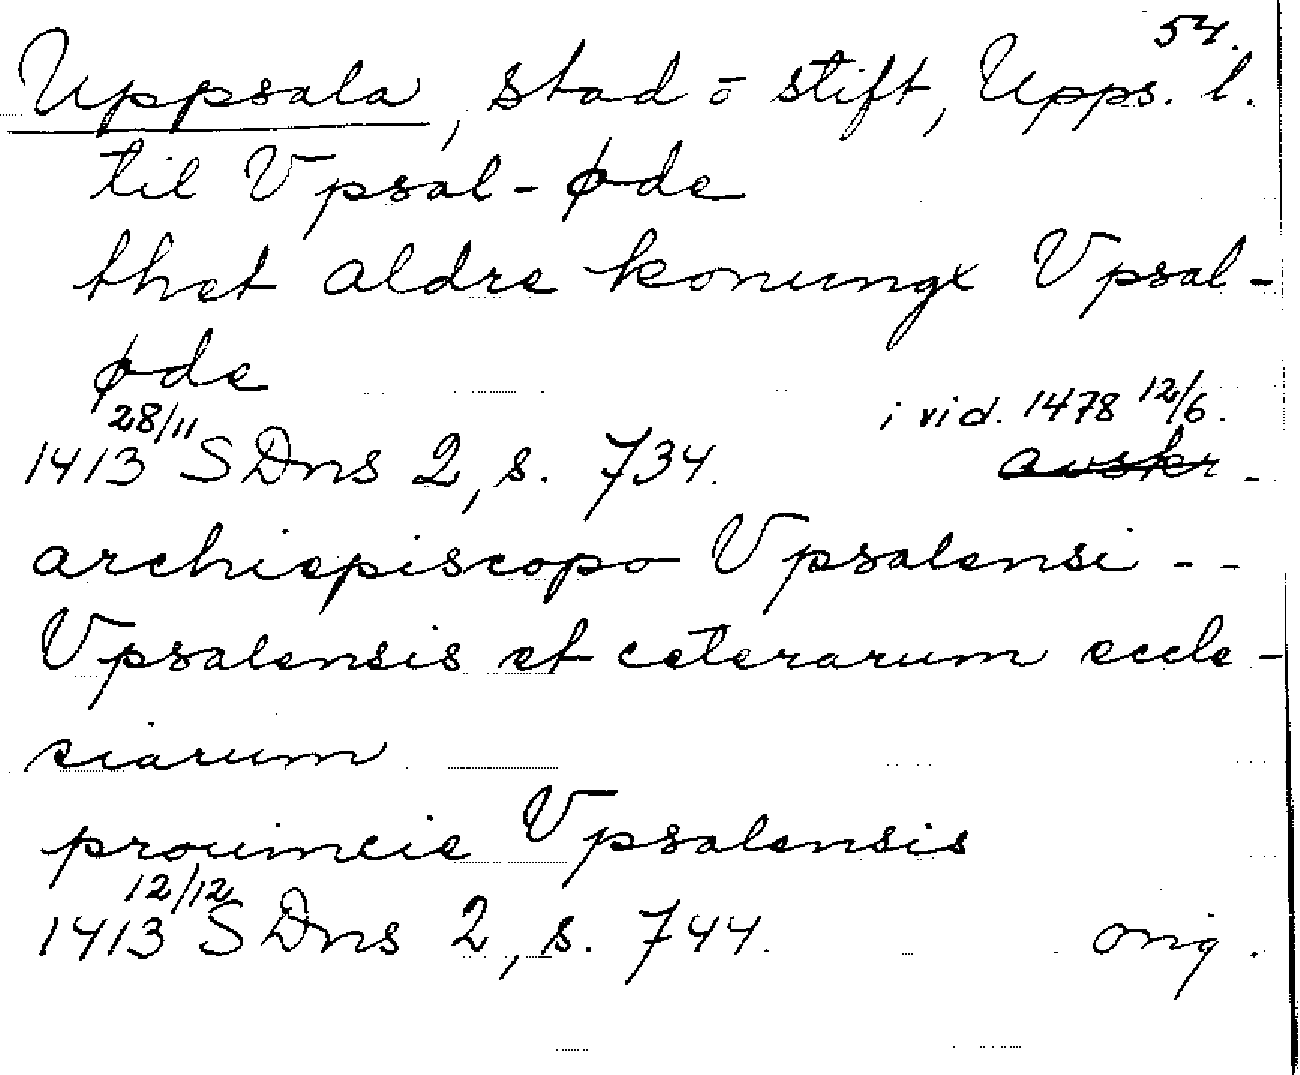 54.
Uppsala, stad o stift, Upps. l.
til Vpsal-øde
thet aldre konungx Vpsal-
øde
28/11 i vid. 1478 12/6.
1413 SDns 2, s. 734. avskr.
archiepiscopo Vpsalensi - -
Vpsalensis et ceterarum eccle-
siarum
prouincie Vpsalensis
12/12
1413 SDns 2, s. 744. orig.